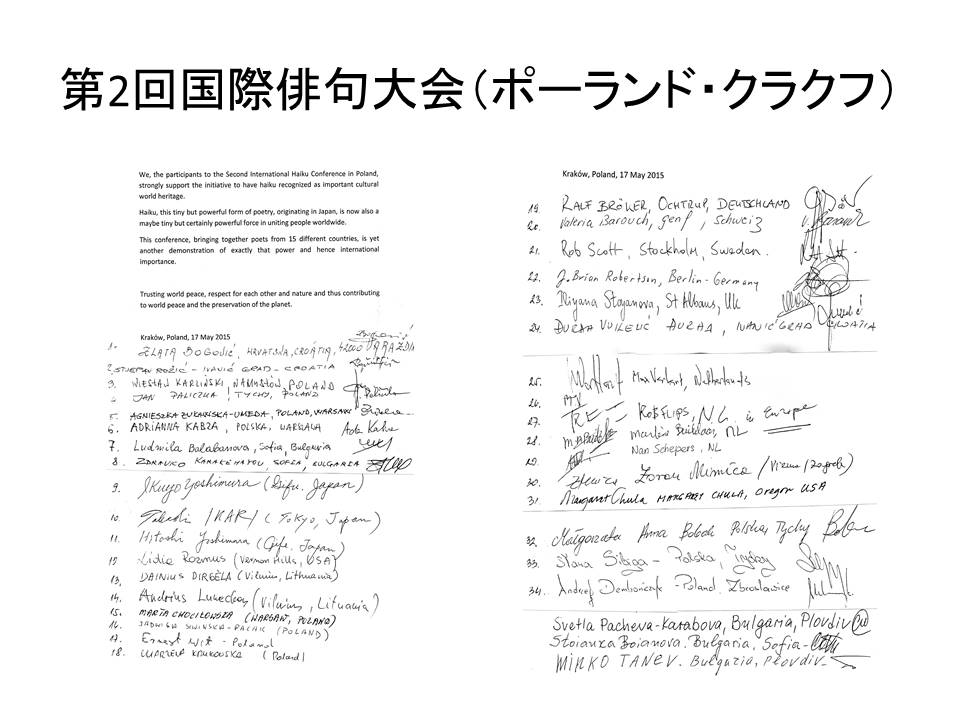 第2回国際俳句大会（ポーランド・クラクフ）
We, the participants to the Second International Haiku Conference in Poland,
strongly support the initiative to have haiku recognized as important cultural
world heritage.
Haiku, this tiny but powerful form of poetry, originating in Japan, is now also a
maybe tiny but certainly powerful force in uniting people worldwide.
This conference, bringing together poets from 15 different countries, is yet
another demonstration of exactly that power and hence international
importance.
Trusting world peace, respect for each other and nature and thus contributing
to world peace and the preservation of the planet.
Kraków, Poland, 17 May 2015
1. ZLATA BOGOVIĆ, HRVATSKA, CROATIA, 42000 VARAŽDIN
2. STJEPAN ROŽIĆ - IVANIĆ GRAD - CROATIA
3. WIESŁAW KARLIŃSKI, NAMYSŁÓW, POLAND
4. JAN ZALICZKA, TYCHY, POLAND
5. AGNIESZKA ŻUŁAWSKA-UMEDA, POLAND, WARSAW
6. ADRIANNA KABZA, POLSKA, WARSZAWA
7. Ludmila Balabanova, Sofia, Bulgaria
8. ZDRAVKO KARAKEHAYOV, SOFIA, BULGARIA
9. Ikuyo Yoshimura (Gifu, Japan)
10. Takashi IKARI (Tokyo, Japan)
11. Hitoshi Yoshimura (Gifu, Japan)
12 Lidia Rozmus (Vernon Hills, USA)
13, DAINIUS DIRGĖLA (Vilnius, Lithuania)
14. Andrius Luneckas (Vilnius, Lituania)
15. MARTA CHOCIŁOWSKA (WARSAW, POLAND)
16. JADWIGA (POLAND)
17. Ernest Wit - Poland
18. MARZENA KRUKOWSKA (Poland)
Kraków, Poland, 17 May 2015
19. RALF BRÖKER, OCHTRUP, DEUTSCHLAND
20. Valeria Barouch, Genf, Schweiz
21. Rob Scott, Stockholm, Sweden.
22. J. Brian Robertson, Berlin - Germany
23. Iliyana Stoyanova, St Albans, UK
24. DURDA VUKELIĆ ROŽIĆ, IVANIĆ GRAD, CROATIA
25. Max Verhart, Netherlands
26.
27. Rob Flips, NL in Europe
28. NL
29. Nan Schepers, NL
30. Zoran Mimica /
31. Margaret Chula MARGARET CHULA, Oregon USA
32. Małgorzata Anna Bobak Polska, Tychy
33. Polska, Tychy
34. Andrzej Dembończyk - Poland. Zbrosławice
Svetla Pacheva-Karabova, Bulgaria, Plovdiv
Stoianka Boianova, Bulgaria, Sofia -
MINKO TANEV. Bulgaria, Plovdiv -